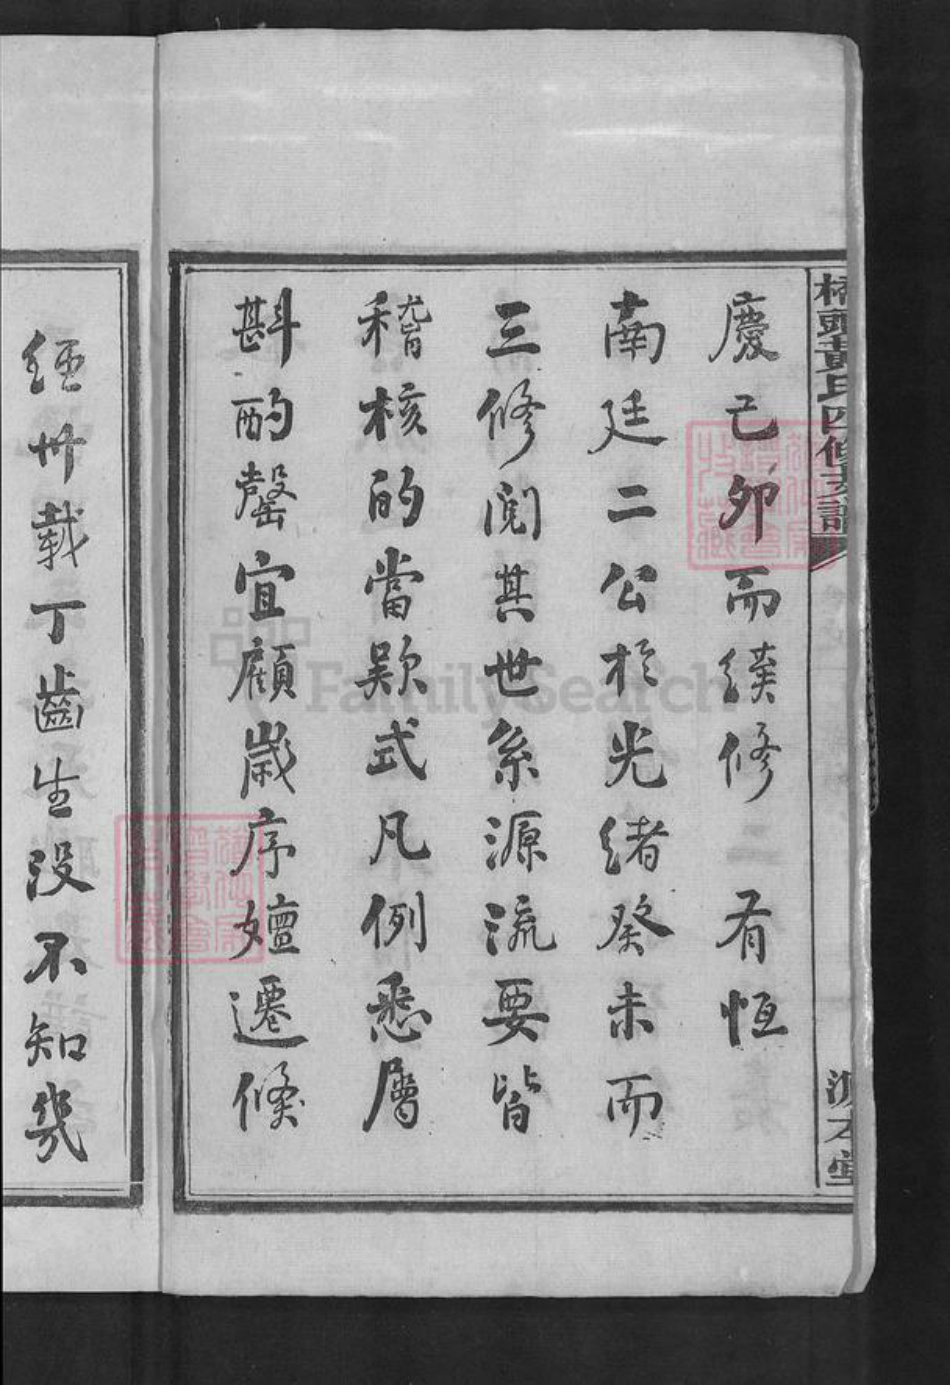 橋頭黃氏四修支譜
慶己卯而續修二有恒
南廷二公於光緒癸未而
三修閱其世系源流要皆
稽核的當款式凡例悉層
斟酌罄宜顧歲序嬗遷倏
經卅載丁齒生沒不知幾
FamilySearch